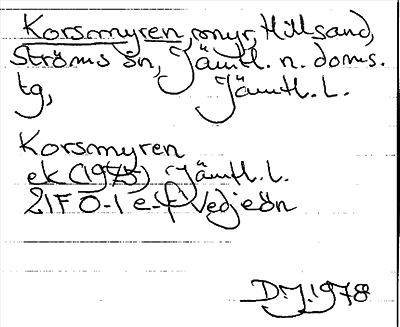 Korsmyren, myr, Hillsand,
Ströms sn, Jämtl. n. doms.
tg, Jämtl. L.
Korsmyren
ek (1975) Jämtl. L.
21F 0-1 e-f Vedjeön
D.J. 1978